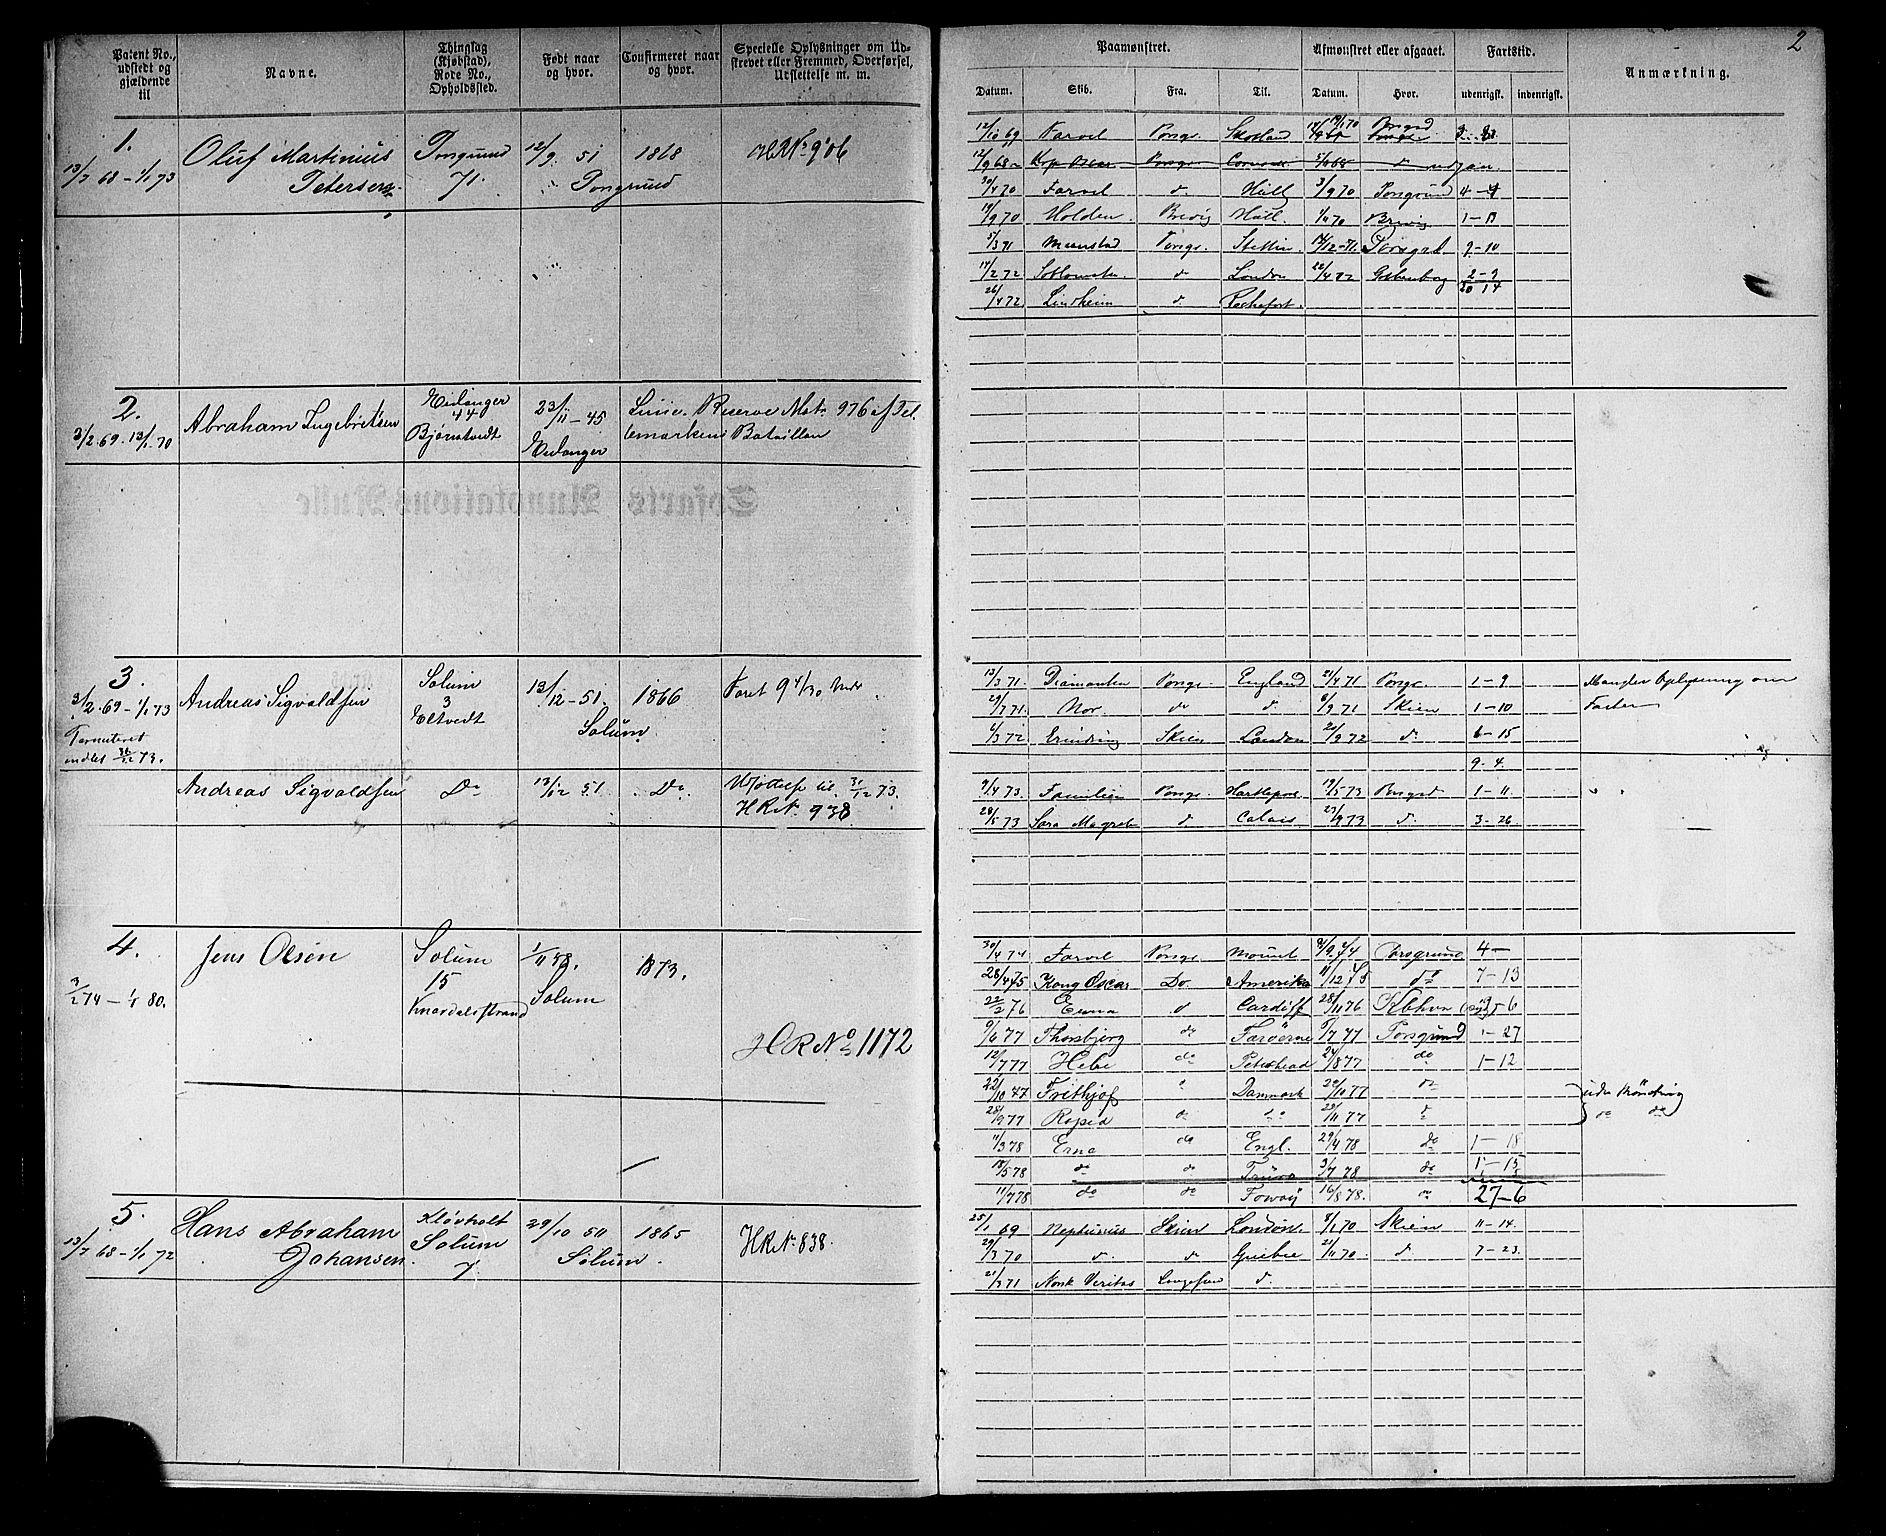 Patent No., udstedt og gjældende til
Navne.
Thinglag (Kjøbstad), Rode No., Opholdssted.
Født naar og hvor.
Confirmeret naar og hvor.
Specielle Oplysninger om Udskrevet eller Fremmed, Overførsel, Udslettelse m. m.
Paamønstret.
Afmønstret eller afgaaet.
Fartstid.
Anmærkning.
2
Datum. Skib. Fra. Til. Datum. Hvor. udenrigst. indenrigst.
1.
13/7 68 - 1/1 73
Oluf Martinius
Petersen
Porsgrund
71
12/9 51
Porsgrund
1868
HR No 906
12/10 69 Farvel Porsgr. Skotland
12/9 68 Porsgr.
30/4 70 Farvel do Hull 3/9 70 Porsgrund 4-4
19/9 70 Holden Brevig Hull. Brevig
5/3 71 Porsgr. Stettin 14/12-71. Porsgrd 9-10
14/2 72 do London 22/4 72 2-9
20 14
26/4 72 Lindheim do Rochefort.
2.
3/2.69.13/1.70
Abraham Ingebretsen
Eidanger
44
Bjørntvedt
23/11-45
Eidanger
Linie. Reserve Mat. 976 af Tel
lemarkens Bataillon
3.
3/2.69-1/1 73
Andreas Sigvaldsen
Solum
3
Eltvedt
13/12-51.
Solum
1866
Faret 9 4/30 Mdr
13/3 71. Diamanten Porsgr. England 21/4 71 Porsgr. 1-9 Mangler Oplysning om
29/7 71. Nor. do do 8/9 71 Skien 1-10 Farten
6/3 72 Erindring Skien London 21/9 72 do 6-15
9. 4.
Andreas Sigvaldsen Do 13/12 51. Do
Udslettes til. 31/12 73.
HR No. 938
9/4 73. Familien Porsgr. Hartlepool 19/5 73 Porsgrd 1-11
28/5 73 Sara Magreth do Calais 27/9 73 do 3-26
4.
3/2 74 - 1/1 80.
Jens Olsen
Solum
15
Knardalsstrand
1/11 58.
Solum
1873.
HR No 1172
30/4 74 Farvel Porsgr. Porsgrund 4-
28/4 75 Kong Oscar Do. Amerika 11/12 75 do 7-13
22/2 76 Erna do Cardiff 28/11 76 Kbhvn
9/6 77 Thorbjørg do Færöerne 9/7 77 Porsgrund 1-27
12/7 77 Hebe do Peterhead 24/8 77 do 1-12
22/10 77 Frithjof Danmark 29/10 77 do uden Mønstring
28/9 77 do 29/11 77 do do do
11/3 78 Erna do Engl. 29/4 78 do 1-18
18/5 78 do do 3/7 78 do 1-15
11/7 78 do do 16/8 78. do 27-6
5.
13/7 68-1/1 72
Hans Abraham
Johansen.
Kløvholt
Solum
7
29/10 50
Solum.
1865
HR No 838.
25/1 69 Neptunus Skien London 8/1 70 Skien 11-14.
29/3 70 do do Quebec 21/11 70 do 7-23.
21/3 71 Norsk Veritas Langesund do